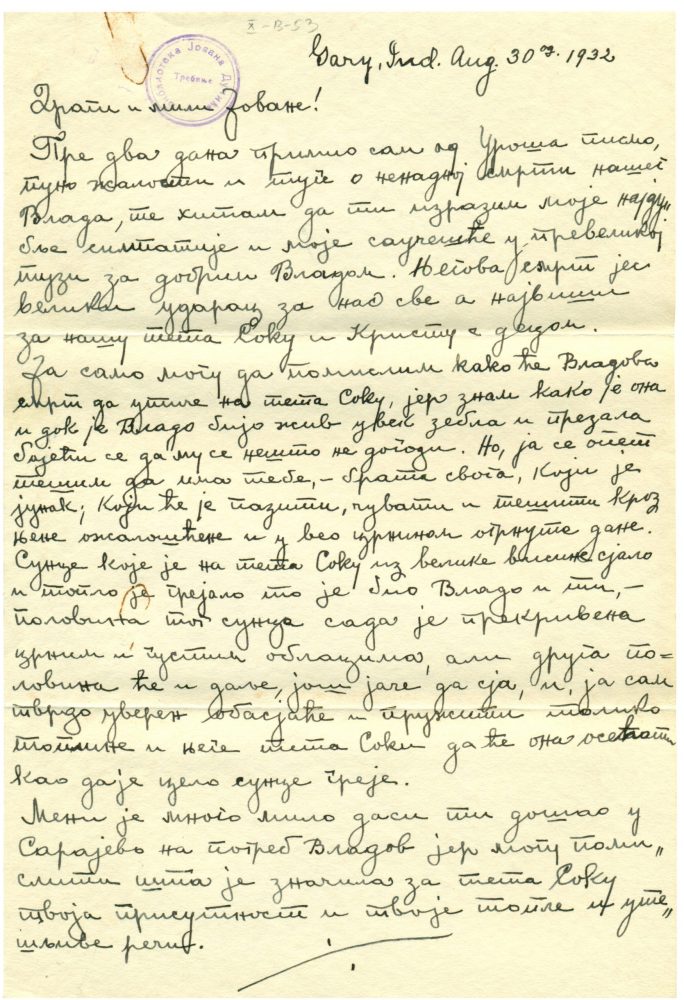 X-B-53
Gary, Ind. Aug. 30ог. 1932
Библиотека Јована Дучића
Требиње
Драги и мили Јоване!
Пре два дана примио сам од Уроша писмо,
пуно жалости и туге о ненадној смрти нашег
Влада, те хитам да ти изразим моје најду„
бље симпатије и моје саучешће у превеликој
тузи за добрим Владом. Његова смрт јес
велики ударац за нас све а највиши
за нашу тета Соку и Кристу с дедом.
Ја само могу да помислим како ће Владова
смрт да утиче на тета Соку, јер знам како је она
и док је Владо био жив увек зебла и презала
бојећи се да му се нешто не догоди. Но, ја се опет
тешим да има тебе, – брата свога, који је
јунак; који ће је пазити, чувати и тешити кроз
њене ожалошћене и у вео црнином огрнуте дане.
Сунце које је на тета Соку из велике висине сјало
и топло је грејало то је био Владо и ти, –
половина тог сунца сада је прекривена
црним и густим облацима, али друга по=
ловина ће и даље, још јаче да сја, и, ја сам
тврдо уверен обасјаће и пружити толико
топлине и неге тета Соки да ће она осећати
као да је цело сунце греје.
Мени је много мило да си ти дошао у
Сарајево на погреб Владов јер могу поми„
слити шта је значила за тета Соку
твоја присутност и твоје топле и уте„
шљиве речи.